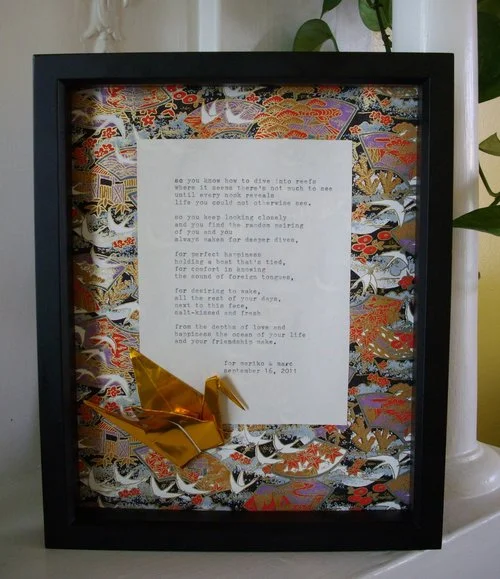 so you know how to dive into reefs
where it seems there's not much to see
until every nook reveals
life you could not otherwise see.
so you keep looking closely
and you find the random pairing
of you and you
always makes for deeper dives,
for perfect happiness
holding a boat that's tied,
for comfort in knowing
the sound of foreign tongues,
for desiring to wake,
all the rest of your days,
next to this face,
salt-kissed and fresh
from the depths of love and
happiness the ocean of your life
and your friendship make.
for mariko & marc
september 16, 2011